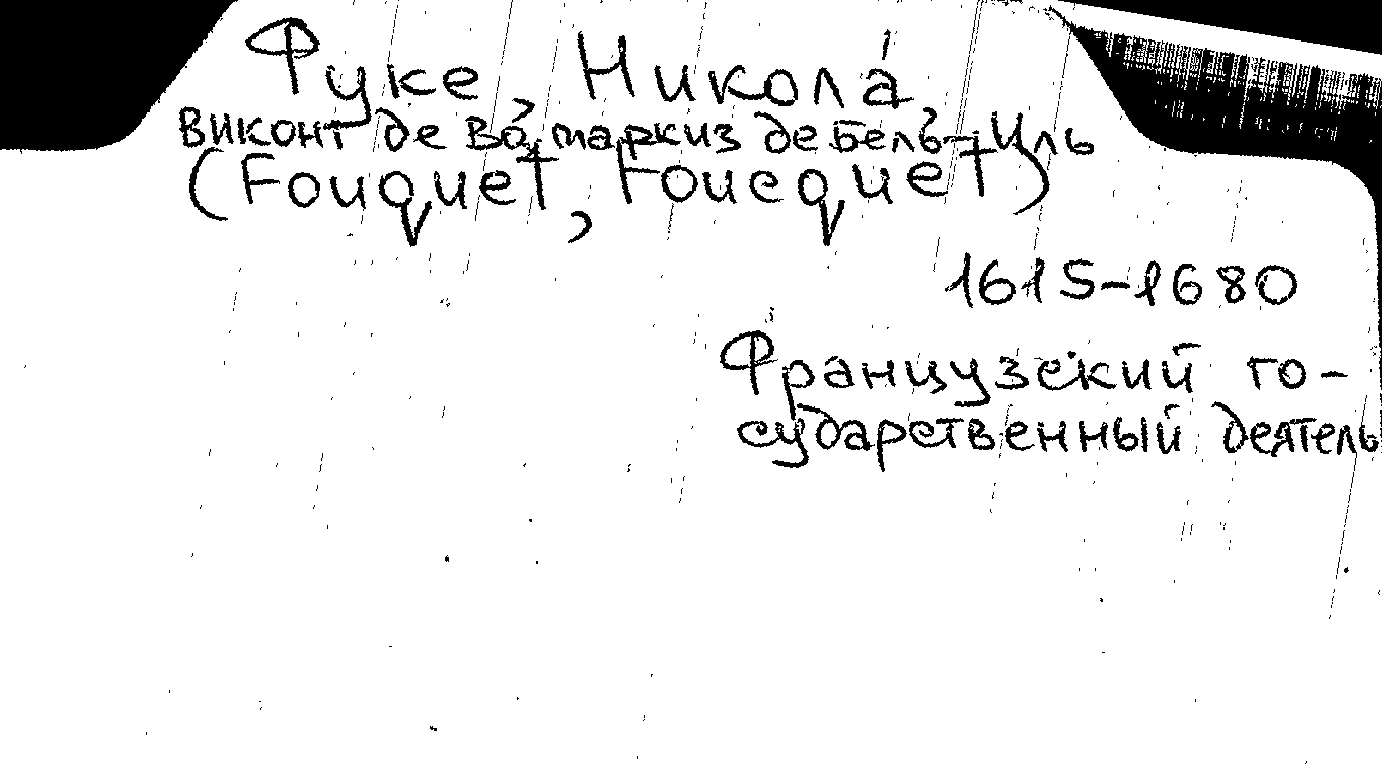 Фуке, Никола́,
виконт де Во́, маркиз де Бель-Иль
(Fouquet, Foucquet)
1615-1680
Французский го-
сударственный деятель